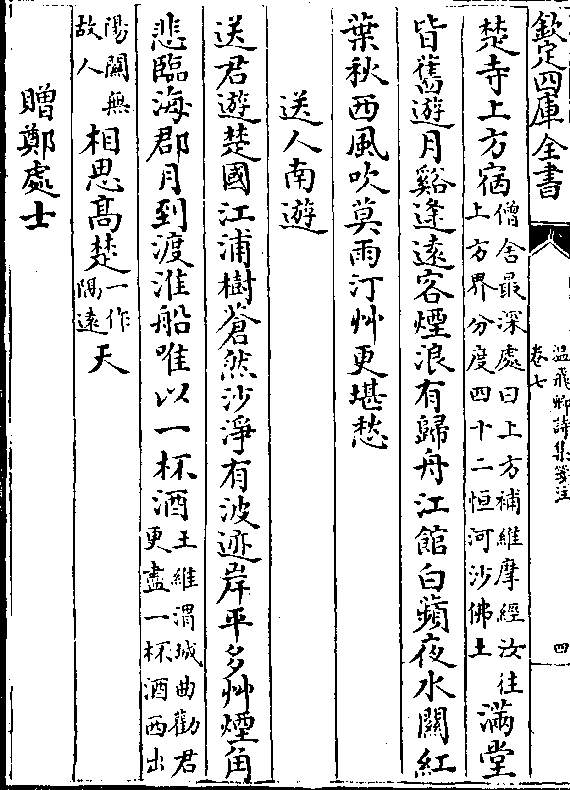 欽定四庫全書
温飛卿詩集箋注
卷七
四
楚寺上方宿僧舍最深處曰上方補維摩經汝往上方界分度四十二恒河沙佛土滿堂
皆舊遊月谿逢遠客煙浪有歸舟江館白蘋夜水關紅
葉秋西風吹莫雨汀艸更堪愁
送人南遊
送君遊楚國江浦樹蒼然沙淨有波迹岸平多艸煙角
悲臨海郡月到渡淮船唯以一杯酒王維渭城曲勸君更盡一杯酒西出
陽關無故人相思髙楚一作隅遠天
贈鄭處士